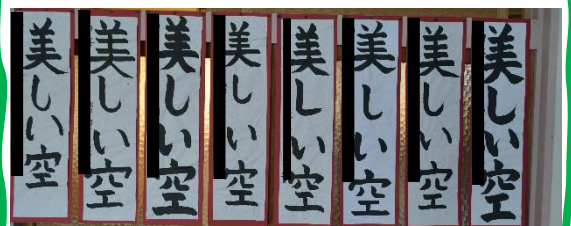 美しい空
美しい空
美しい空
美しい空
美しい空
美しい空
美しい空
美しい空